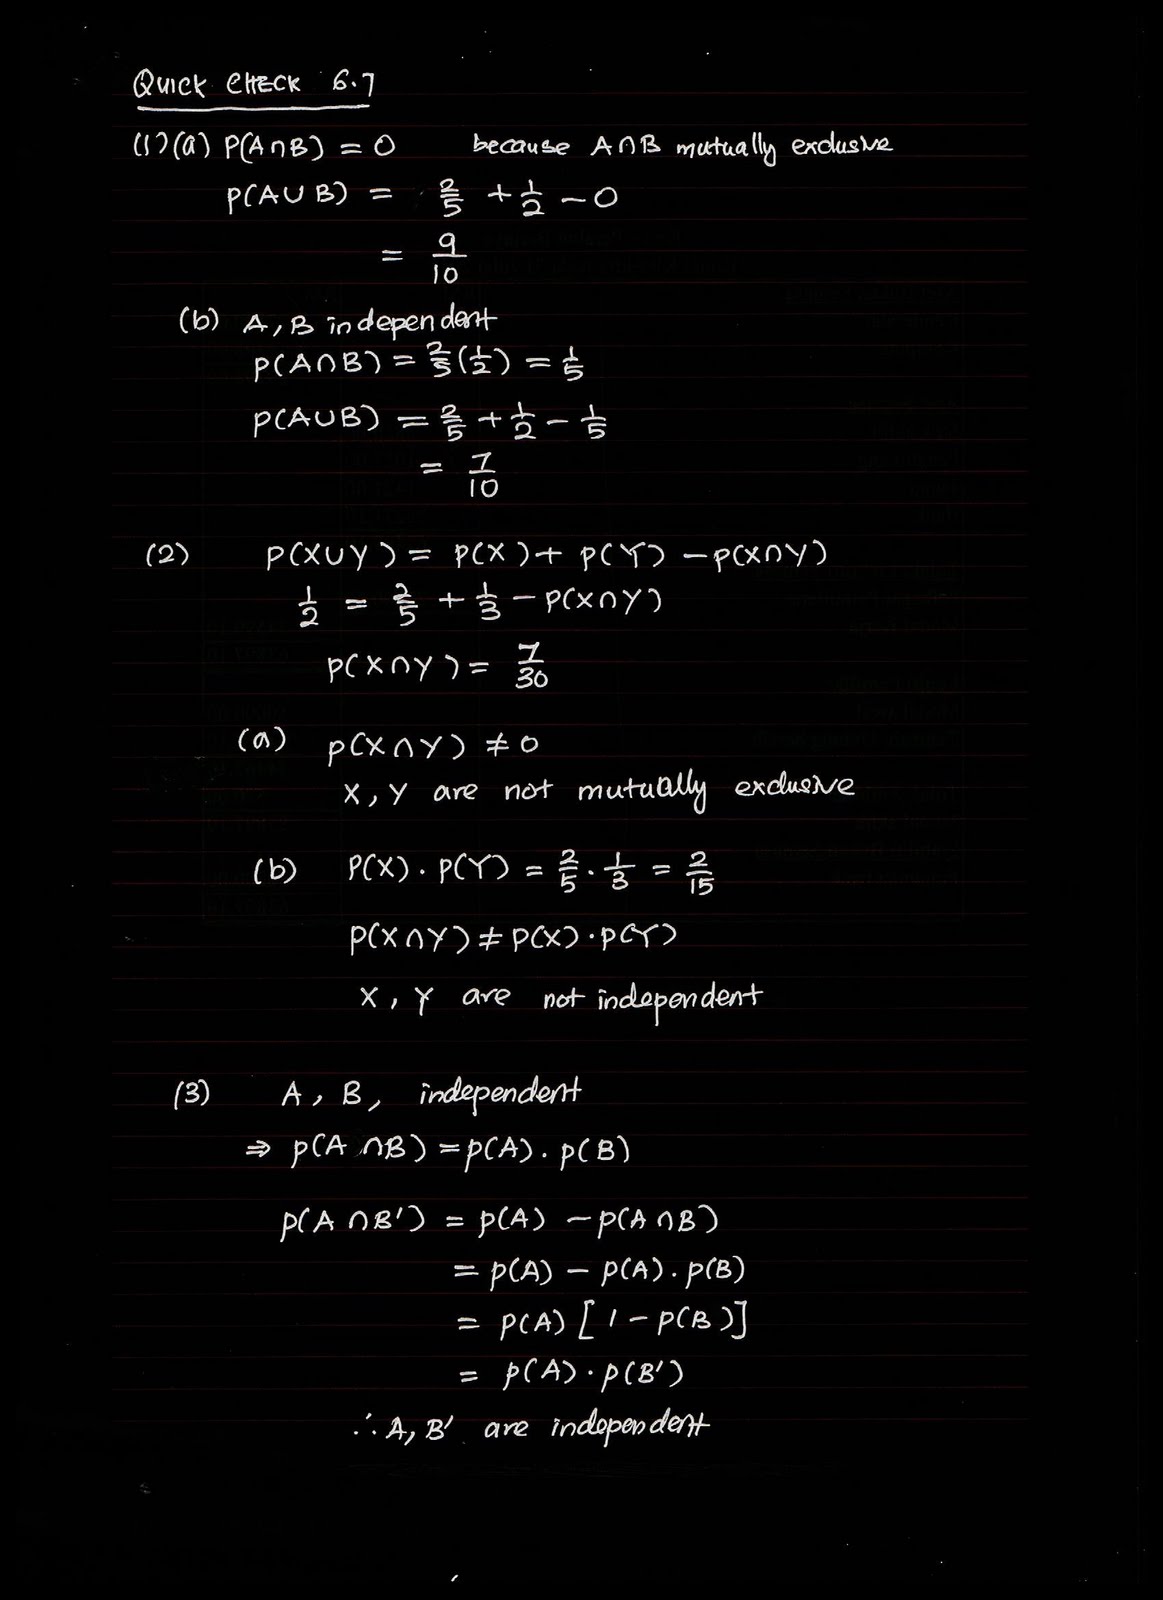 QUICK CHECK 6.7
(1)(a) P(A∩B) = 0 because A∩B mutually exclusive
P(A∪B) = 2/5 + 1/2 − 0
= 9/10
(b) A, B independent
P(A∩B) = 2/5(1/2) = 1/5
P(A∪B) = 2/5 + 1/2 − 1/5
= 7/10
(2) P(X∪Y) = P(X) + P(Y) − P(X∩Y)
1/2 = 2/5 + 1/3 − P(X∩Y)
P(X∩Y) = 7/30
(a) P(X∩Y) ≠ 0
X, Y are not mutually exclusive
(b) P(X) · P(Y) = 2/5 · 1/3 = 2/15
P(X∩Y) ≠ P(X) · P(Y)
X, Y are not independent
(3) A, B, independent
⇒ P(A∩B) = P(A) · P(B)
P(A∩B') = P(A) − P(A∩B)
= P(A) − P(A) · P(B)
= P(A) [1 − P(B)]
= P(A) · P(B')
∴ A, B' are independent